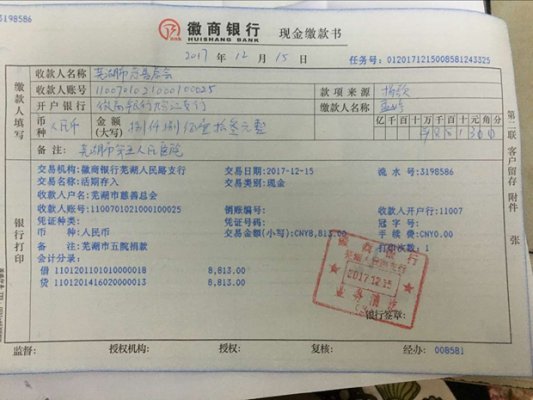 3198586
徽商银行 现金缴款书
HUISHANG BANK
2017 年 12 月 15 日 任务号: 0120171215008581243325
缴款人填写
收款人名称 芜湖市慈善总会
收款人账号 1100701021000100025 款项来源 捐款
开户银行 徽商银行 支行 缴款人名称
币种 人民币 金额(大写) 捌仟捌佰壹拾叁元整 亿千百十万千百十元角分 ¥881300
备注: 芜湖市第五人民医院
第二联 客户留存 附件 张
银行打印
交易机构:徽商银行芜湖人民路支行 交易日期:2017-12-15 流水号:3198586
交易名称:活期存入 交易类别:现金
收款人户名:芜湖市慈善总会
收款人账号:1100701021000100025 销账编号: 收款人开户行:11007
凭证种类: 凭证号码: 冠字号:
币种:人民币 交易金额(小写):CNY8,813.00 手续费:CNY0.00
备注:芜湖市五院捐款 打印次数:1
会计分录:
借 1101201101010000018 8,813.00
贷 1101201416020000013 8,813.00
徽商银行
芜湖人民路支行
2017.12.15
业务清讫
银行签章:
监督: 授权机构: 授权: 复核: 经办: 008581